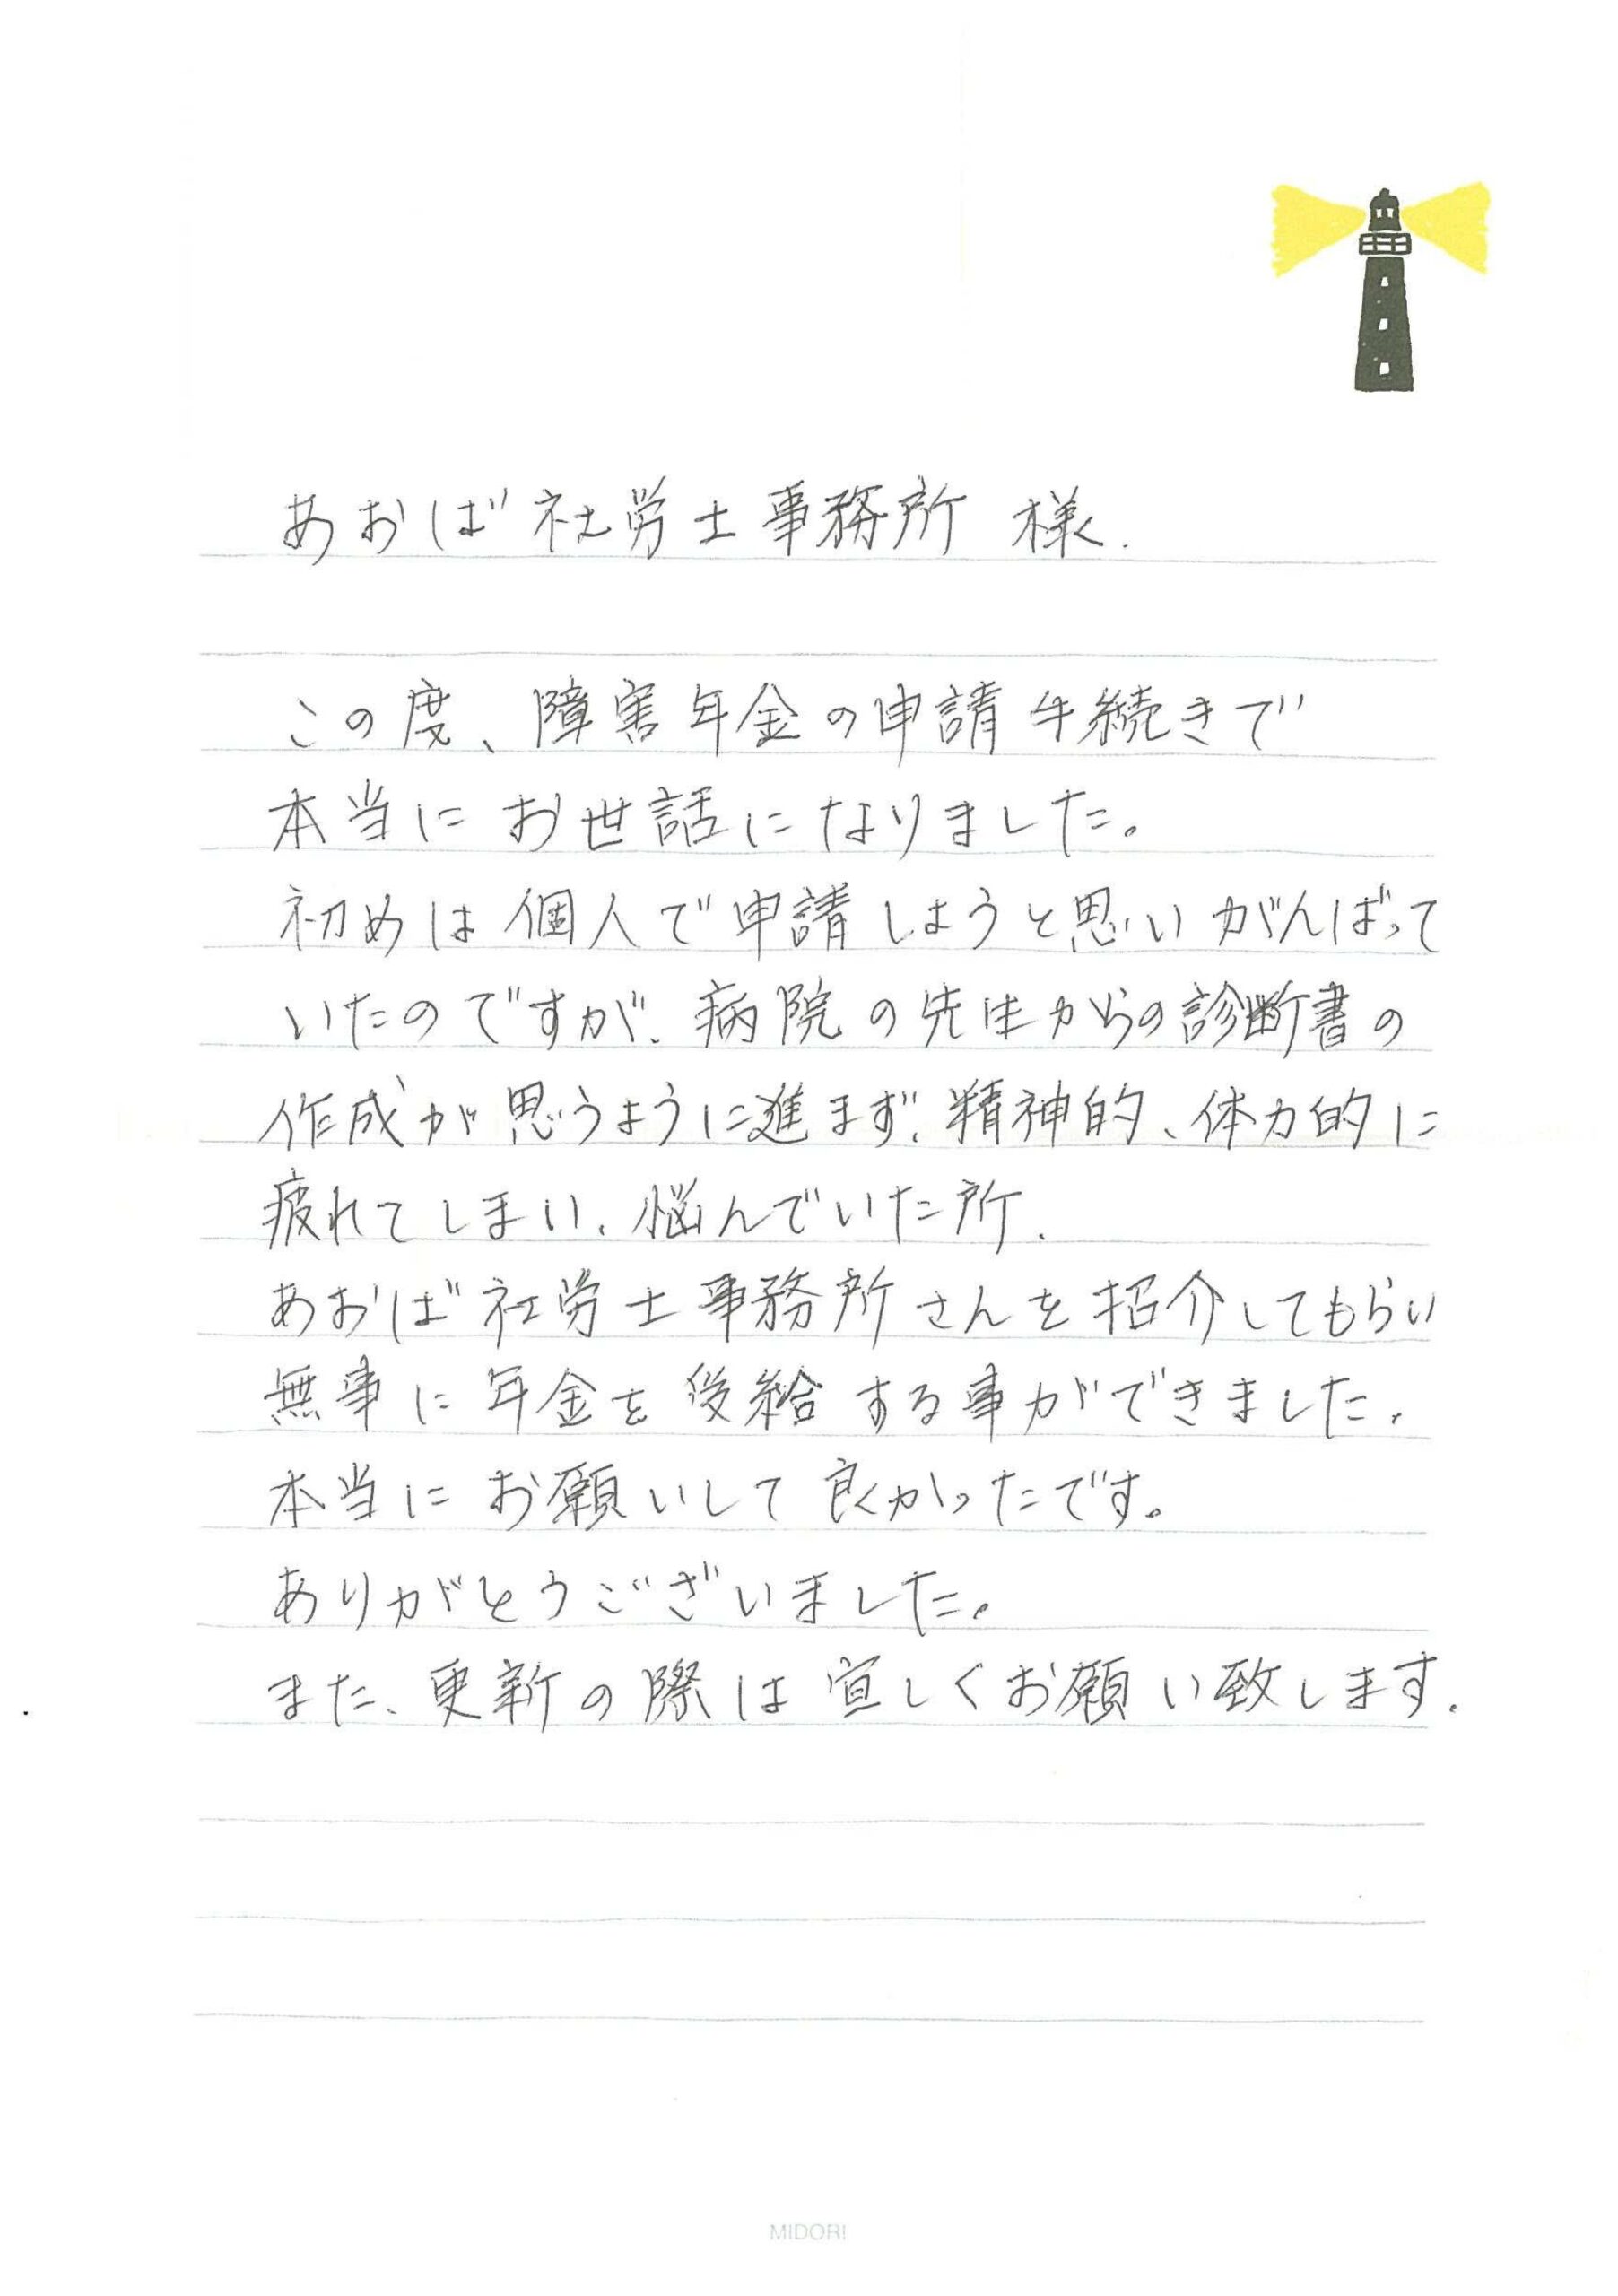 あおば社労士事務所 様.
この度、障害年金の申請手続きで
本当にお世話になりました。
初めは個人で申請しようと思いがんばって
いたのですが、病院の先生からの診断書の
作成が思うように進まず、精神的、体力的に
疲れてしまい、悩んでいた所、
あおば社労士事務所さんを招介してもらい
無事に年金を受給する事ができました。
本当にお願いして良かったです。
ありがとうございました。
また、更新の際は宜しくお願い致します。
MIDORI